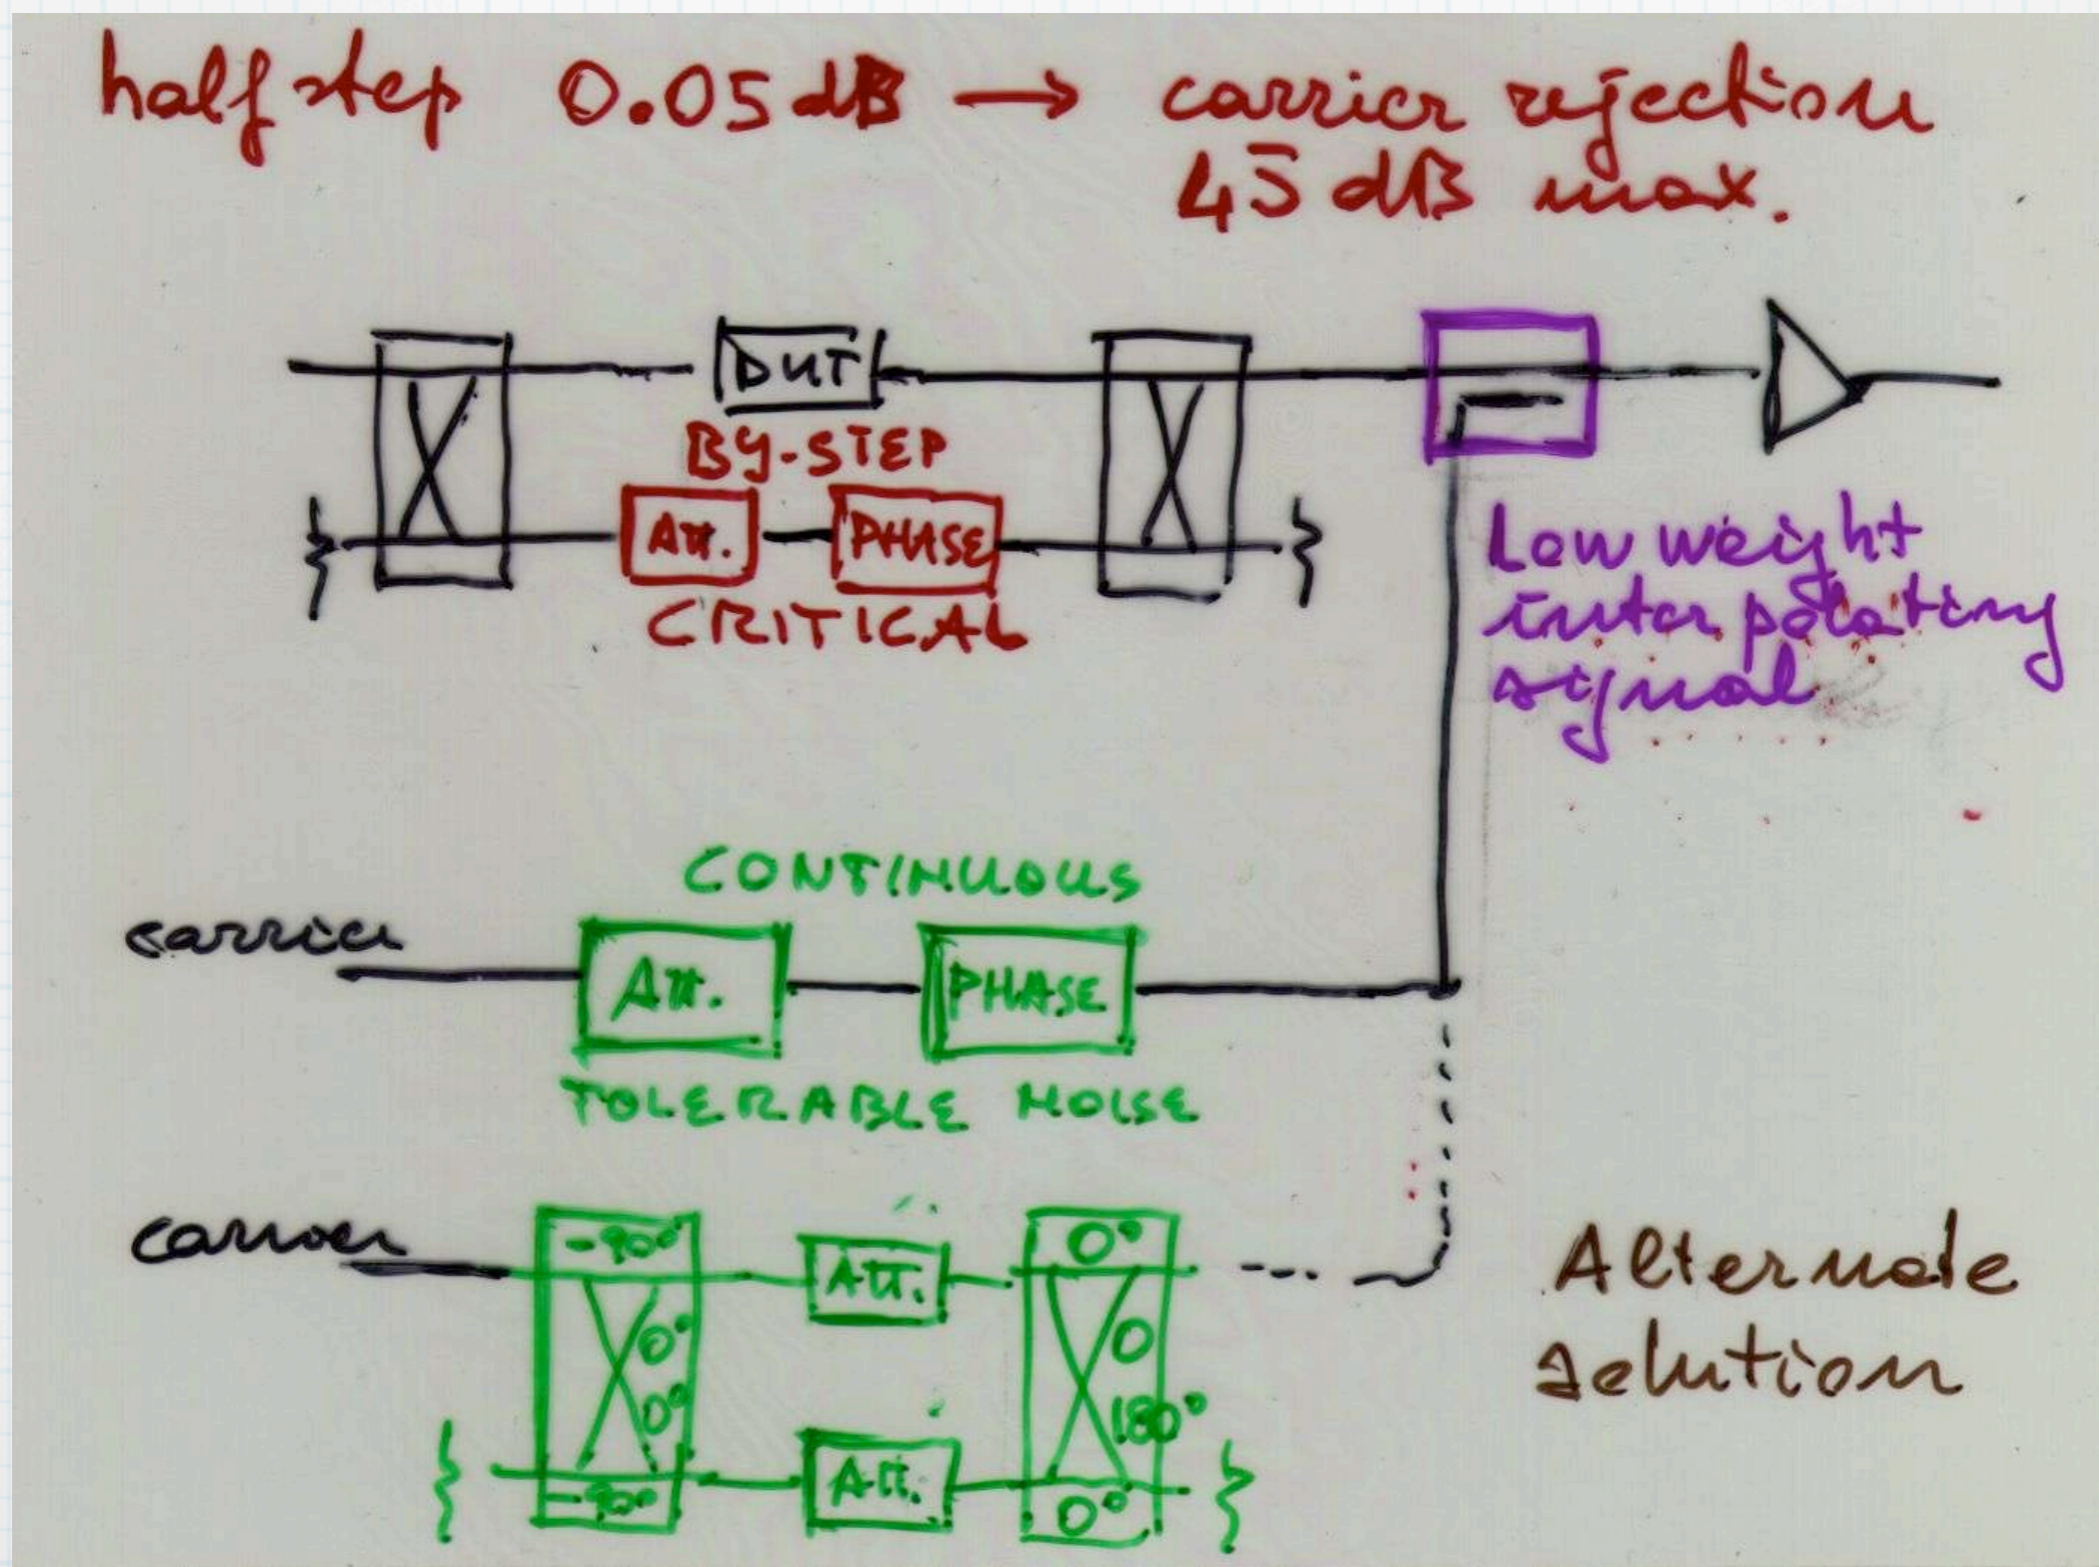 half step 0.05 dB → carrier rejection
45 dB max.
DUT
BY-STEP
ATT.
PHASE
CRITICAL
Low weight
interpolating
signal
CONTINUOUS
carrier
ATT.
PHASE
TOLERABLE NOISE
carrier
-90°
0°
0°
-90°
ATT.
ATT.
0°
0
180°
0°
Alternate
solution